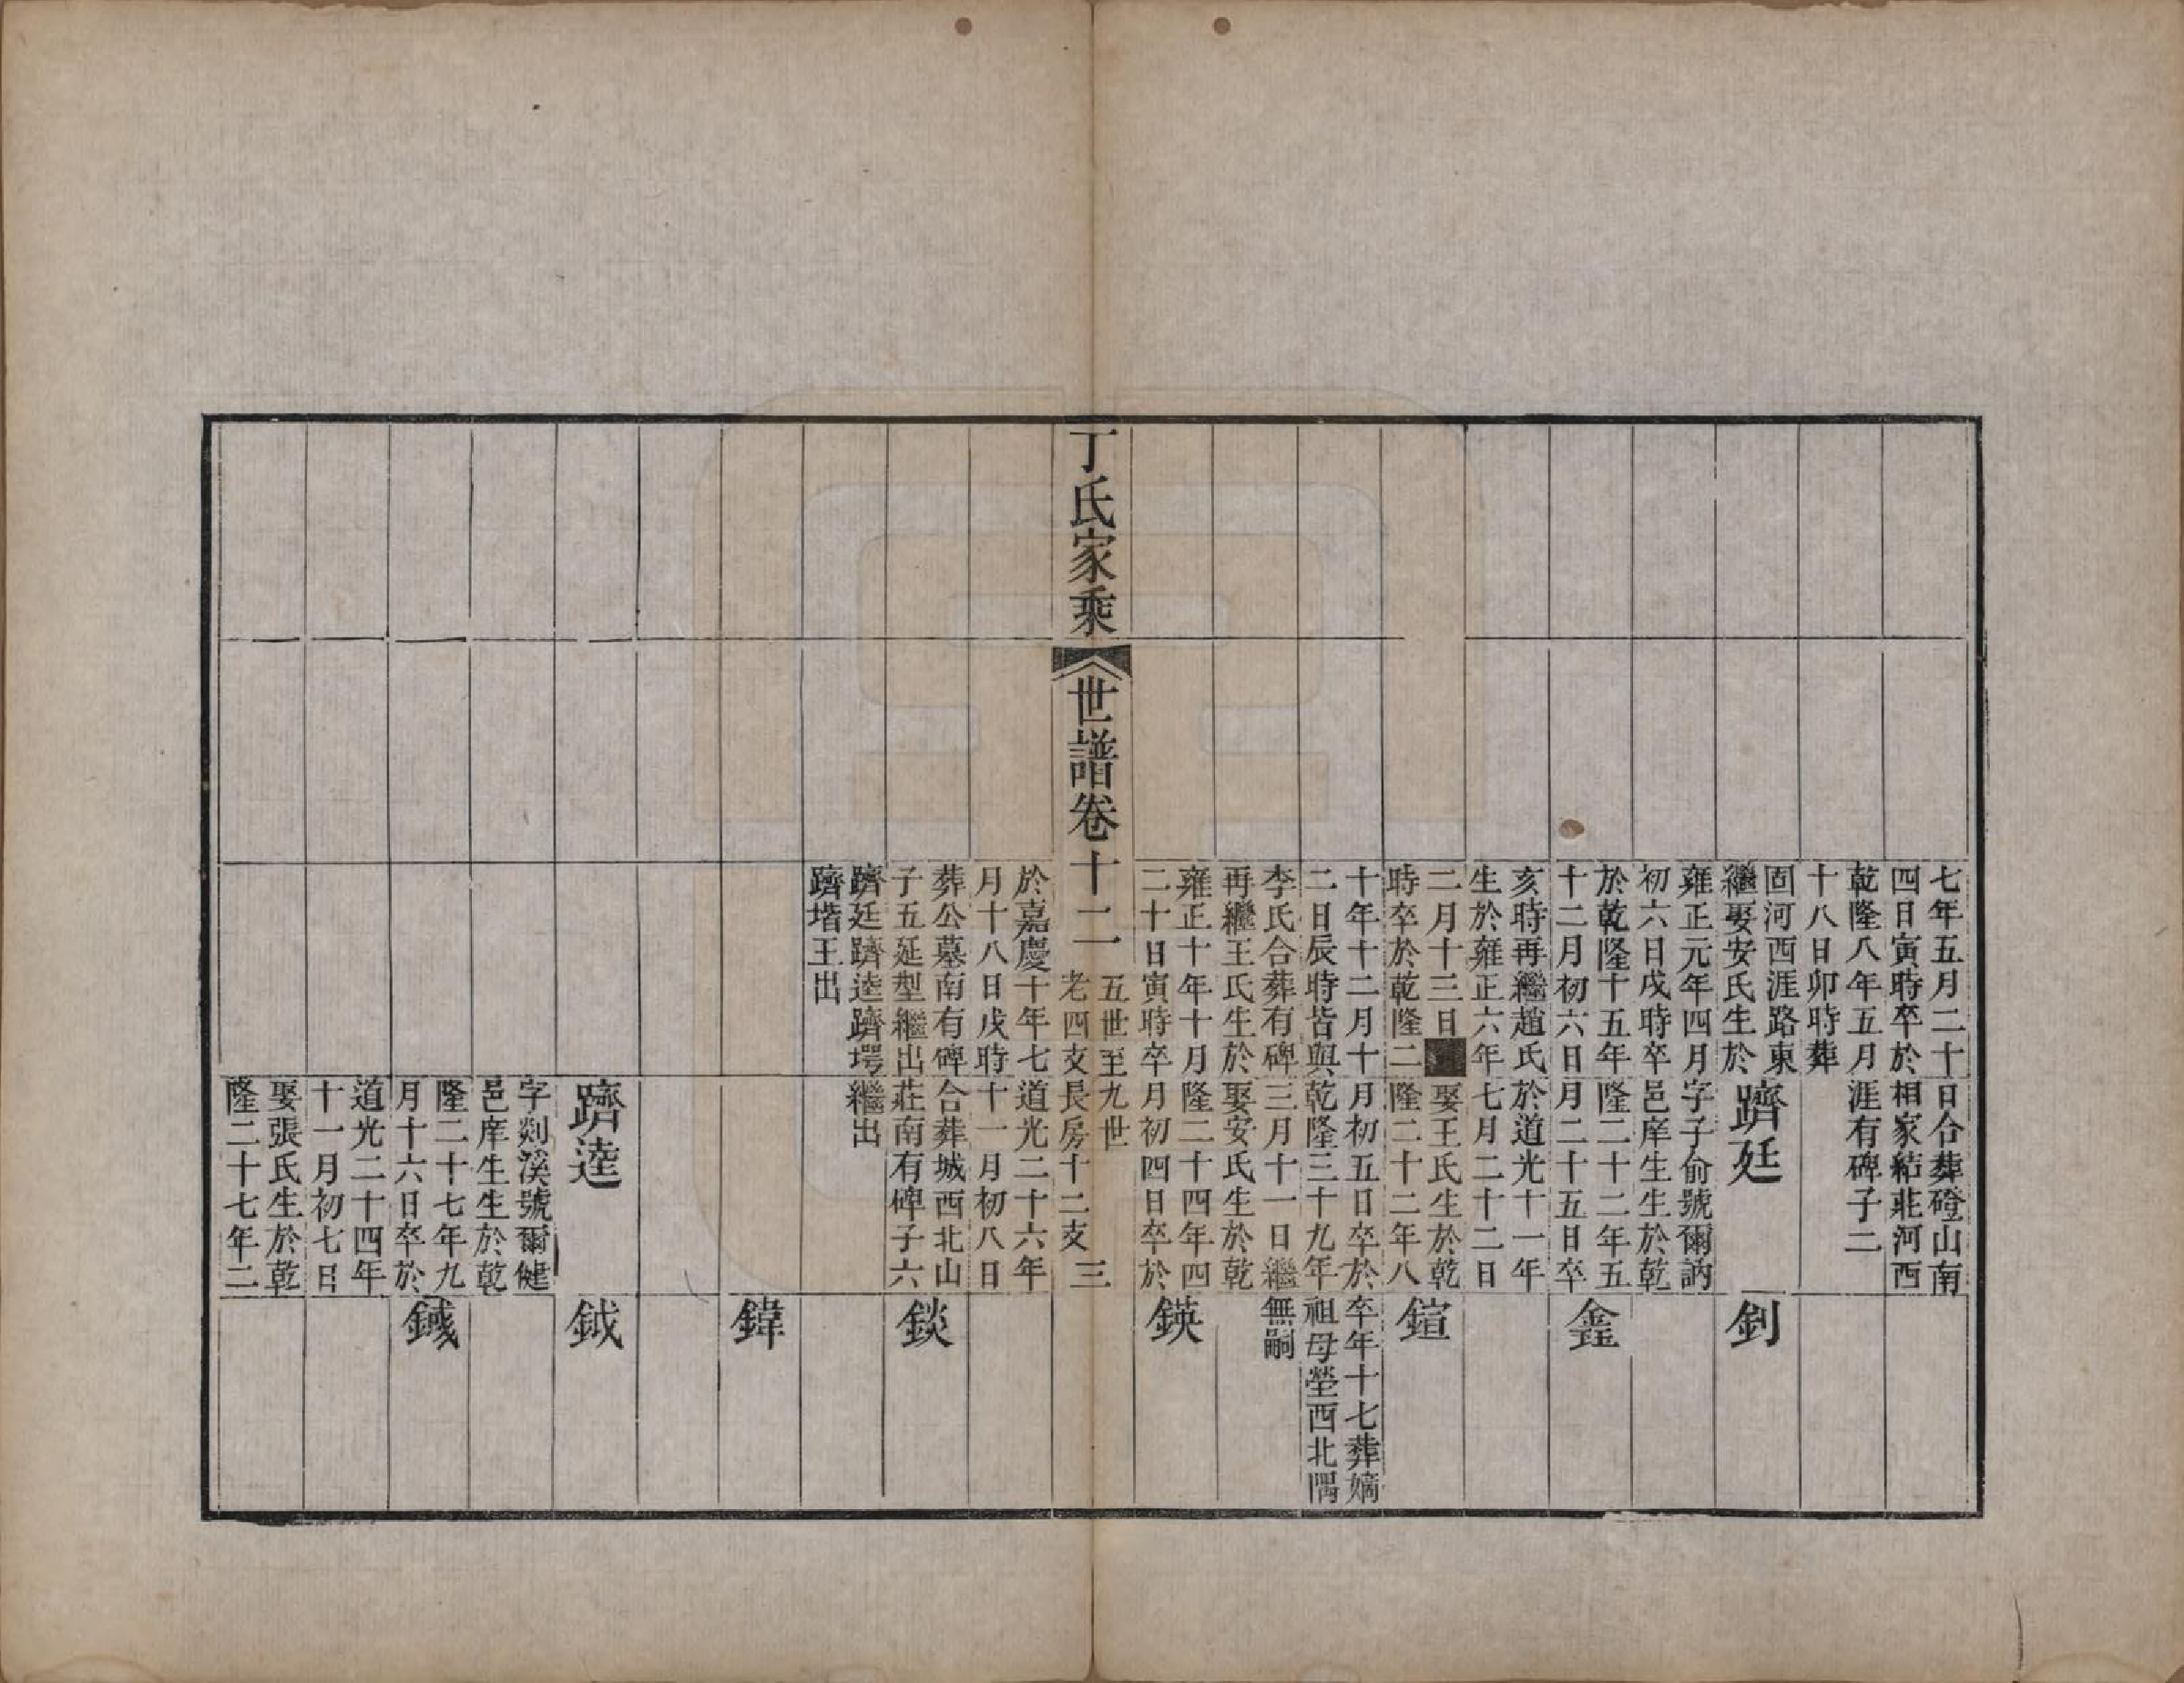 丁氏家乘
世譜卷十二
五世至九世
老四支長房十二支
三
七年五月二十
四日寅時卒於
乾隆八年五月
十八日卯時葬
固河西涯路東
繼娶安氏生於
雍正元年四月
初六日戌時卒
於乾隆十五年
十二月初六日
亥時再繼趙氏
生於雍正六年
二月十三日
時卒於乾隆二
十年十二月十
二日辰時皆與
李氏合葬有碑
再繼王氏生於
雍正十年十月
二十日寅時卒
於嘉慶十年七
月十八日戌時
葬公墓南有碑
子五延型繼出
躋廷躋逵躋堮繼出
躋堦王出
日合葬磴山南
相家結莊河西
涯有碑子二
躋廷
字子俞號爾訥
邑庠生生於乾
隆二十二年五
月二十五日卒
於道光十一年
七月二十二日
娶王氏生於乾
隆二十二年八
月初五日卒於
乾隆三十九年
三月十一日繼
娶安氏生於乾
隆二十四年四
月初四日卒於
道光二十六年
十一月初八日
合葬城西北山
莊南有碑子六
躋逵
字剡溪號爾健
邑庠生生於乾
隆二十七年九
月十六日卒於
道光二十四年
十一月初七日
娶張氏生於乾
隆二十七年二
釗
鍹
卒年十七葬嫡
祖母塋西北隅
無嗣
鍈
錟
鍏
鉞